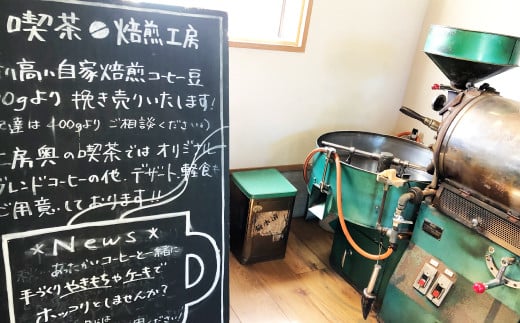 喫茶 焙煎工房
香り高い自家焙煎コーヒー豆
00gより 挽き売りいたします!
配達は400gより ご相談ください♪)
工房奥の喫茶では オリジナル
ブレンドコーヒーの他、デザート、軽食も
ご用意しております!!
*News*
あたたかいコーヒーと一緒に
手づくりやきもちゃケーキで
ホッコリとしませんか?
ください♪